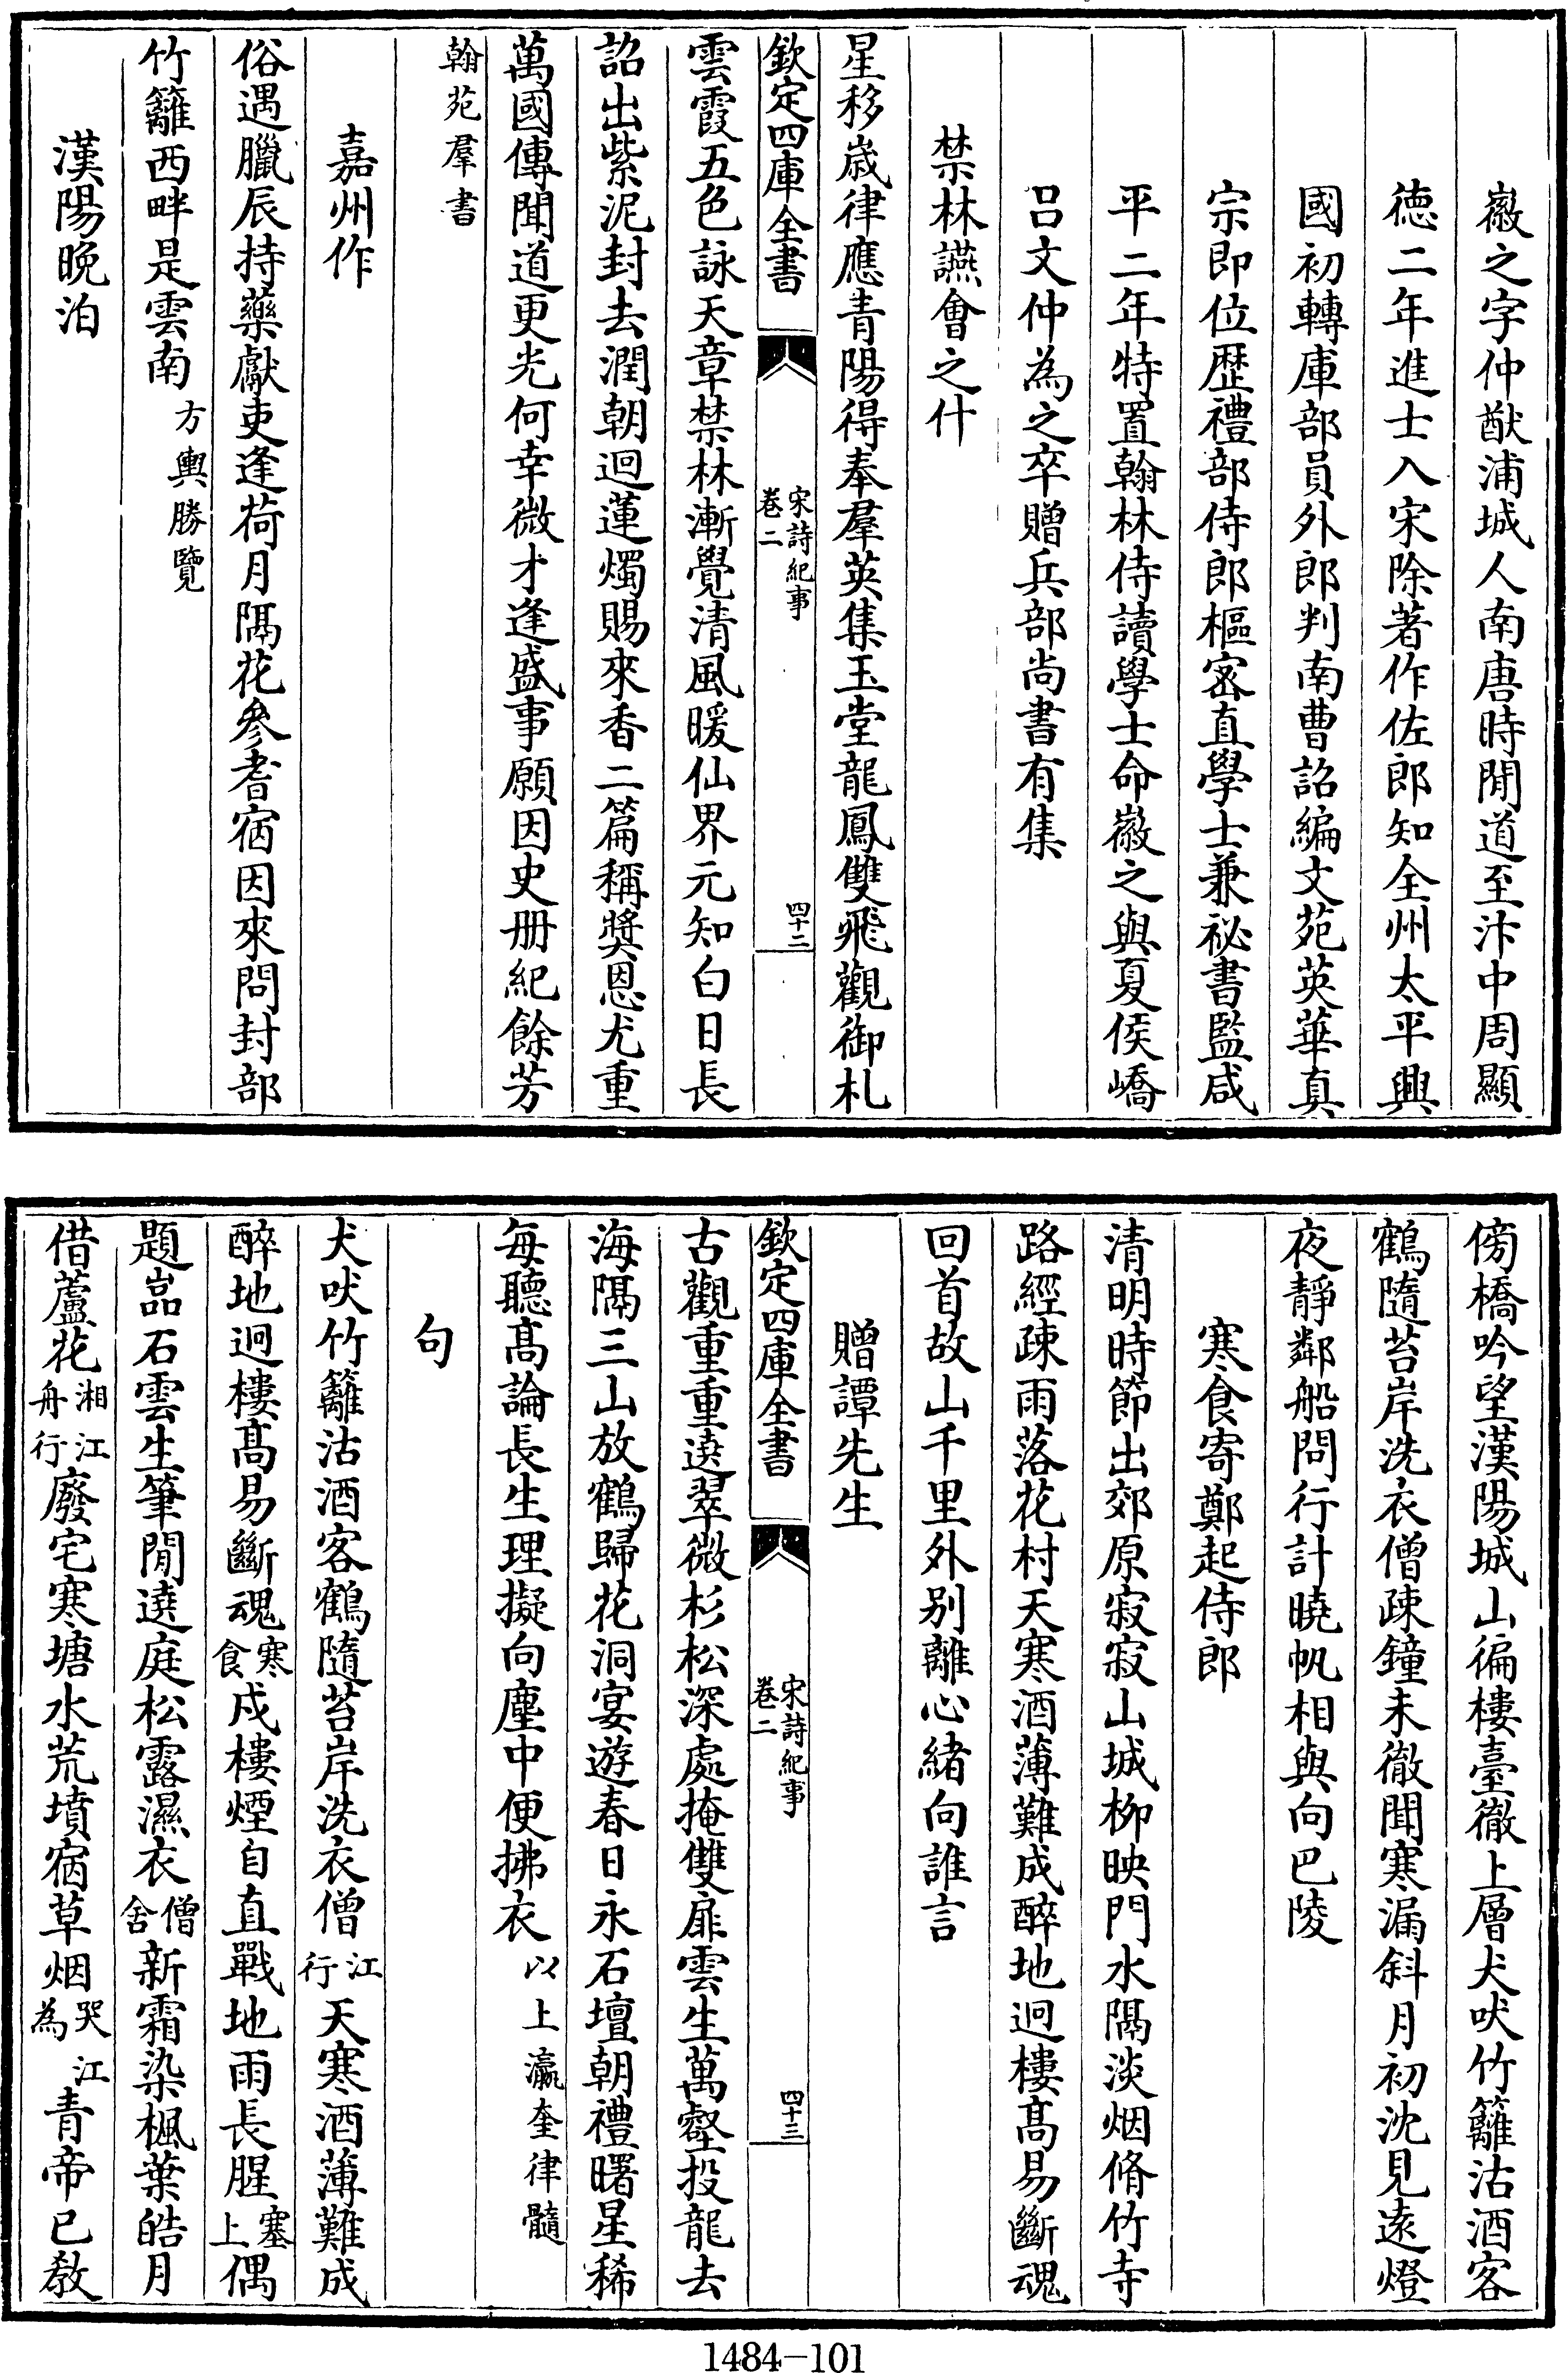 徽之字仲猷浦城人南唐時閒道至汴中周顯
徳二年進士入宋除著作佐郎知全州太平興
國初轉庫部員外郎判南曹詔編文苑英華真
宗即位歴禮部侍郎樞宻直學士兼祕書監咸
平二年特置翰林侍讀學士命徽之與夏侯嶠
吕文仲為之卒贈兵部尚書有集
禁林讌會之什
星移嵗律應青陽得奉羣英集玉堂龍鳳雙飛觀御札
欽定四庫全書
宋詩紀事
卷二
四十二
雲霞五色詠天章禁林漸覺清風暖仙界元知白日長
詔出紫泥封去潤朝迴蓮燭賜來香二篇稱奬恩尤重
萬國傳聞道更光何幸微才逢盛事願因史册紀餘芳
翰苑羣書
嘉州作
俗遇臘辰持藥獻吏逢荷月隔花參耆宿因來問封部
竹籬西畔是雲南方輿勝覽
漢陽晚泊
傍橋吟望漢陽城山徧樓臺徹上層犬吠竹籬沽酒客
鶴隨苔岸洗衣僧疎鐘未徹聞寒漏斜月初沈見逺燈
夜靜鄰船問行計曉帆相與向巴陵
寒食寄鄭起侍郎
清明時節出郊原寂寂山城柳映門水隔淡烟脩竹寺
路經疎雨落花村天寒酒薄難成醉地迥樓髙易斷魂
回首故山千里外别離心緒向誰言
贈譚先生
欽定四庫全書
宋詩紀事
卷二
四十三
古觀重重遶翠微杉松深處掩雙扉雲生萬壑投龍去
海隔三山放鶴歸花洞宴遊春日永石壇朝禮曙星稀
每聽髙論長生理擬向塵中便拂衣以上瀛奎律髓
句
犬吠竹籬沽酒客鶴隨苔岸洗衣僧江行天寒酒薄難成
醉地迥樓髙易斷魂寒食戍樓煙自直戰地雨長腥塞上偶
題嵓石雲生筆閒遶庭松露濕衣僧舍新霜染楓葉皓月
借蘆花湘江舟行廢宅寒塘水荒墳宿草烟哭江為青帝已敎
1484-101